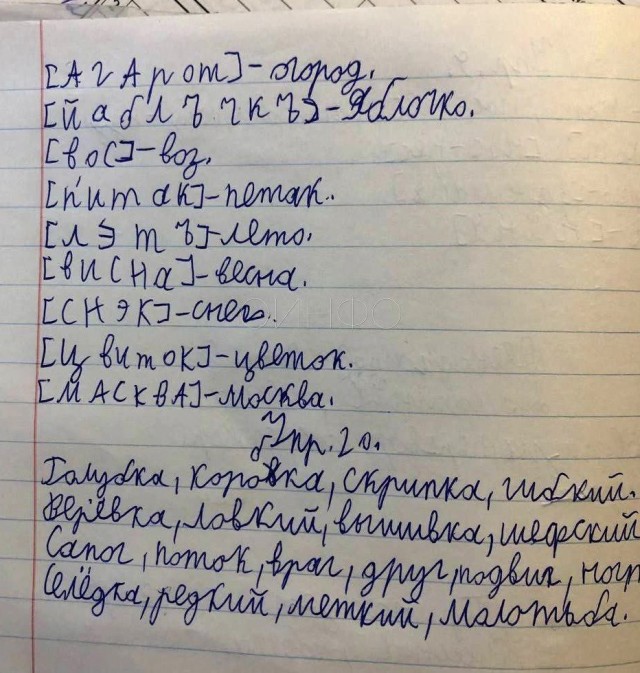 [АгАрот]-огород.
[йаблъчкъ]-Яблочко.
[вос]-воз.
[п'итак]-петак.
[лЭтъ]-лето.
[виСНа]-весна.
[СНЭК]-снег.
[цвиток]-цветок.
[МАСКВА]-Москва.
Упр.20.
Голубка, коровка, скрипка, гибкий.
Верёвка, ловкий, вышивка, шефский
Сапог, поток, враг, друг, подвиг,
Селёдка, редкий, меткий, малотьба.